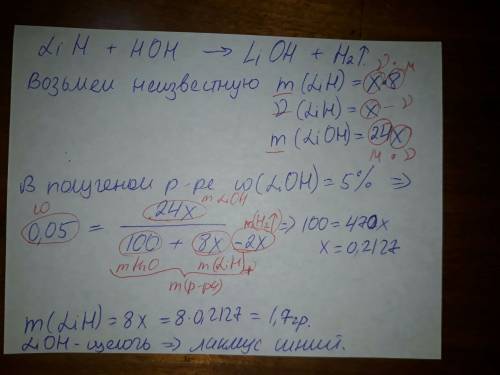 LiH + HOH → LiOH + H₂↑.
ν · M
Возьмем неизвестную m(LiH) = x·8
ν(LiH) = x – ν
m(LiOH) = 24x
M · ν
В полученом р-ре ω(LiOH) = 5% ⇒
ω
m LiOH
0,05 = 24x / (100 + 8x – 2x)
m(H₂↑) ⇒ 100 = 470x
m H₂O m(LiH)
x = 0,2127
m(р-ра)
m(LiH) = 8x = 8·0,2127 = 1,7гр.
LiOH – щелочь ⇒ лакмус синий.